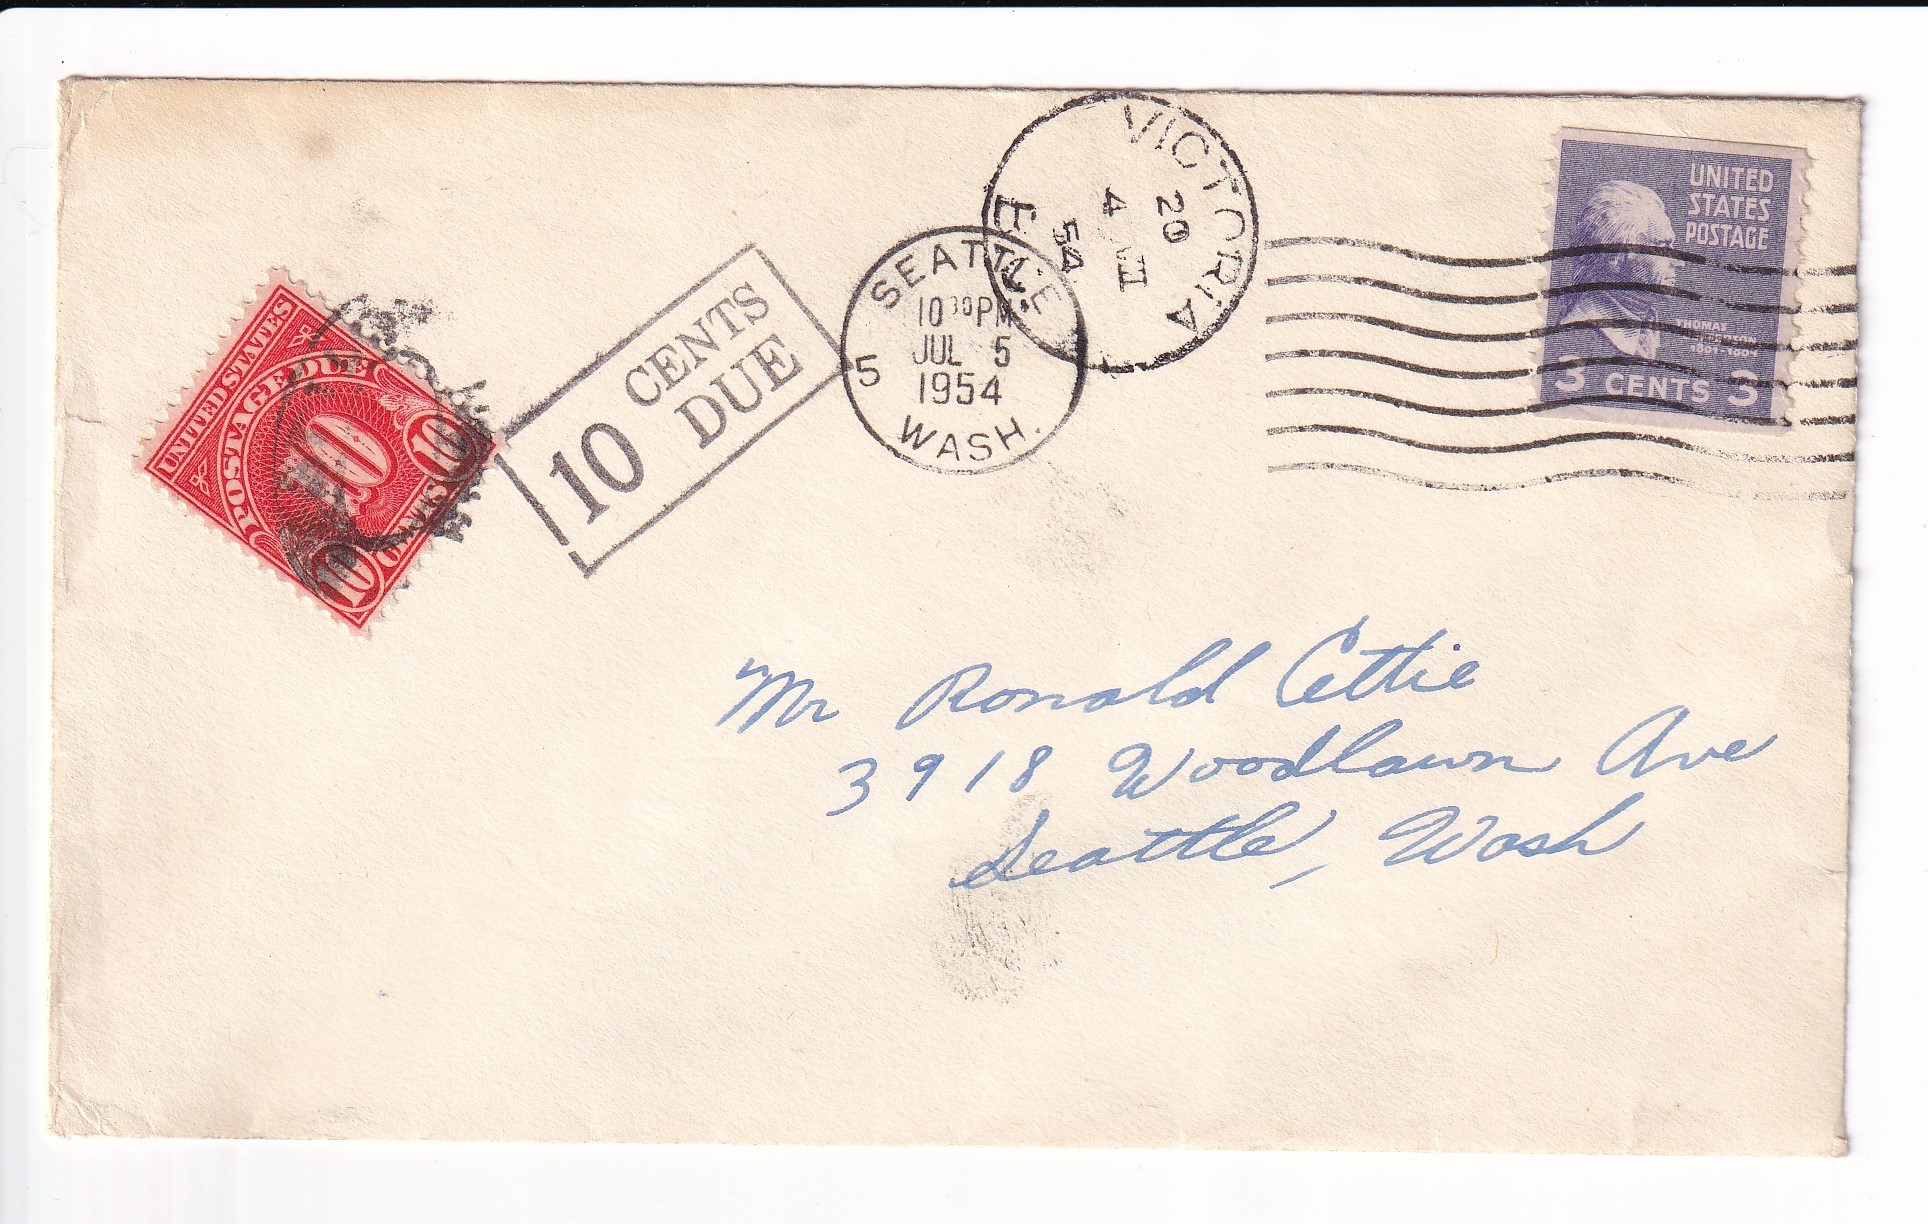 UNITED STATES
POSTAGE DUE
10
10
10
CENTS
10 CENTS
DUE
SEATTLE
10 30 PM
JUL 5
1954
5
WASH.
VICTORIA
20
4
54
UNITED
STATES
POSTAGE
THOMAS
JEFFERSON
1801-1809
3 CENTS 3
Mr Ronald Cettie
3918 Woodlawn Ave
Seattle, Wash